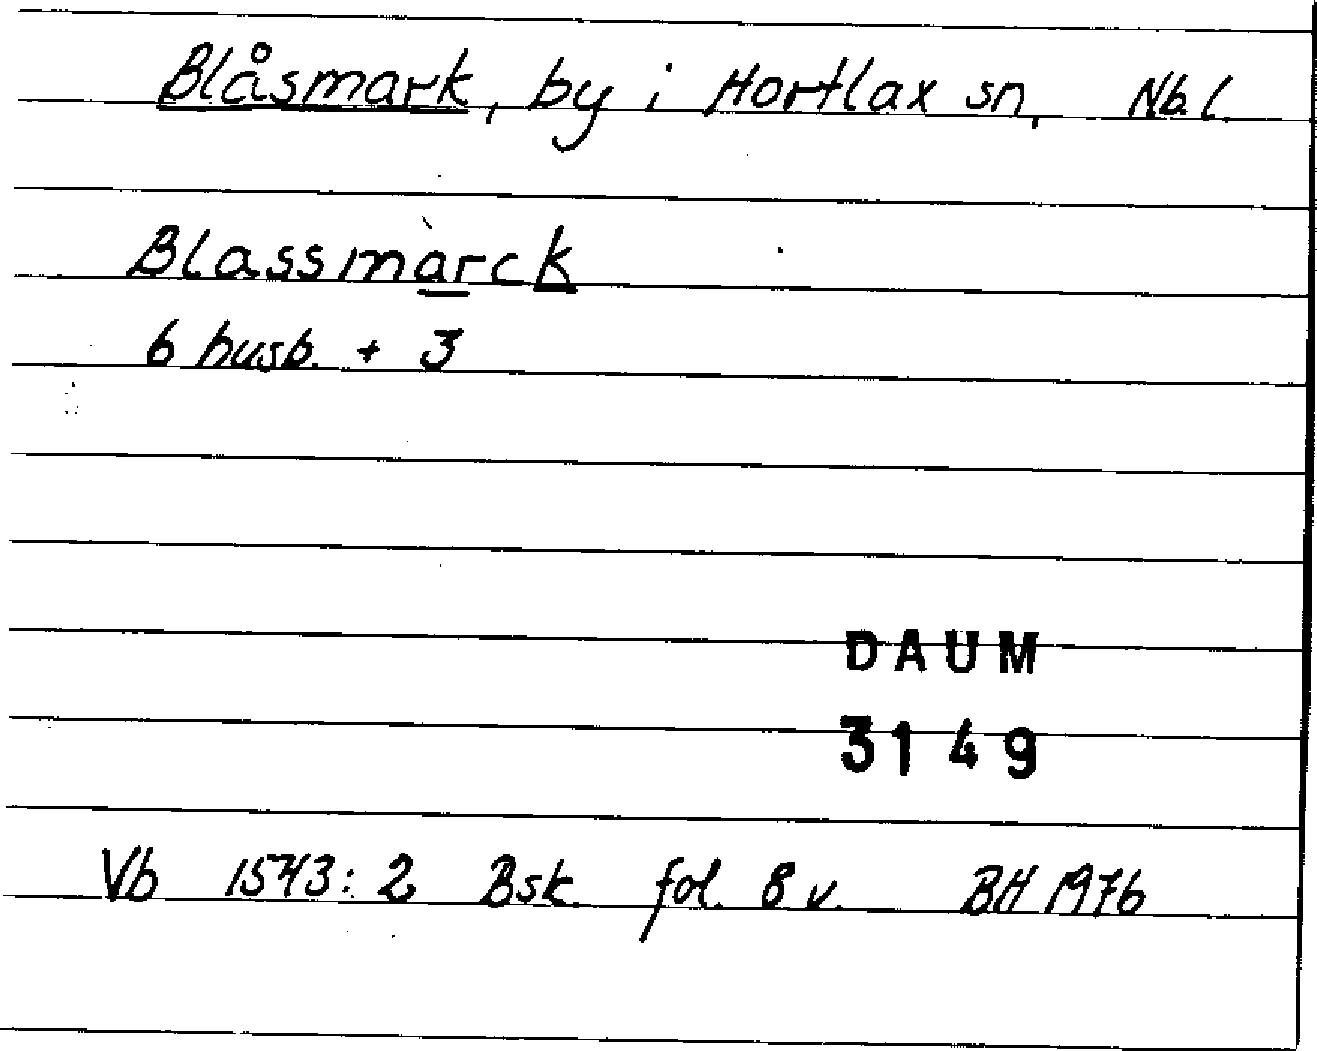 Blåsmark, by i Hortlax sn, Nb. l.
Blassmarck
6 husb. + 3
DAUM
3149
Vb 1543:2 Bsk. fol. 8 v. BH 1976